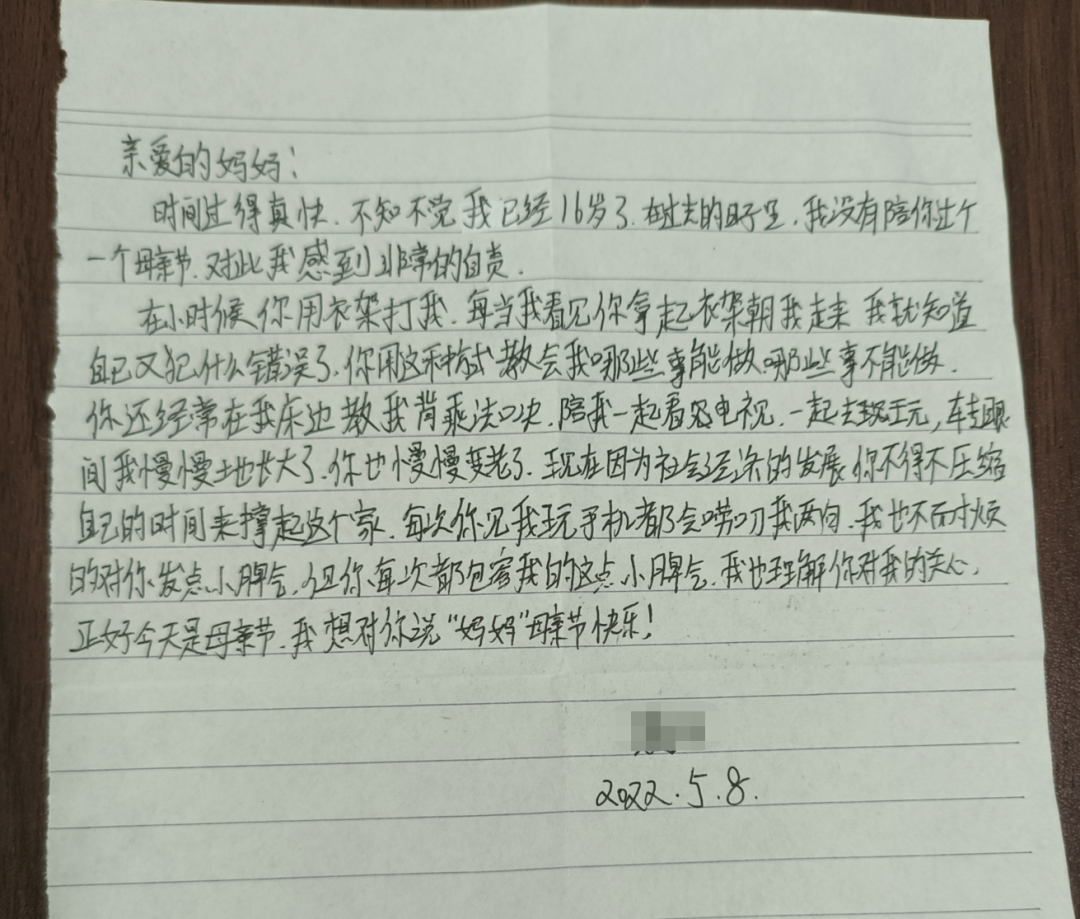 亲爱的妈妈:
时间过得真快.不知不觉我已经16岁了.在过去的日子里.我没有陪你过个
一个母亲节.对此我感到非常的自责.
在小时候你用衣架打我.每当我看见你拿起衣架朝我走来 我就知道
自己又犯什么错误了.你用这种方式教会我哪些事能做.哪些事不能做.
你还经常在我床边教我背乘法口决.陪我一起看电视.一起去玩,转眼
间我慢慢地长大了.你也慢慢变老了.现在因为社会经济的发展.你不得不压缩
自己的时间来撑起这个家.每次你见我玩手机都会唠叨我两句.我也不耐烦
的对你发点小脾气.但你每次都包容我的这点小脾气.我也理解你对我的关心.
正好今天是母亲节.我想对你说"妈妈"母亲节快乐!
2022.5.8.